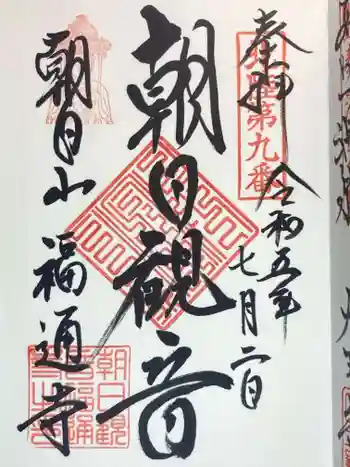 奉拝
第九番
令和五年
七月二日
朝日観音
朝日山
福通寺
朝日観